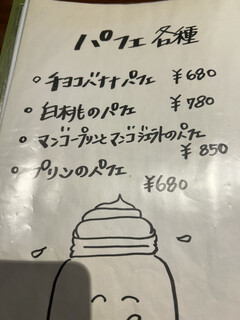 パフェ 各種
○ チョコバナナパフェ ￥680
○ 白桃のパフェ ￥780
○ マンゴープリンとマンゴジェラトのパフェ
￥850
○ プリンのパフェ
￥680